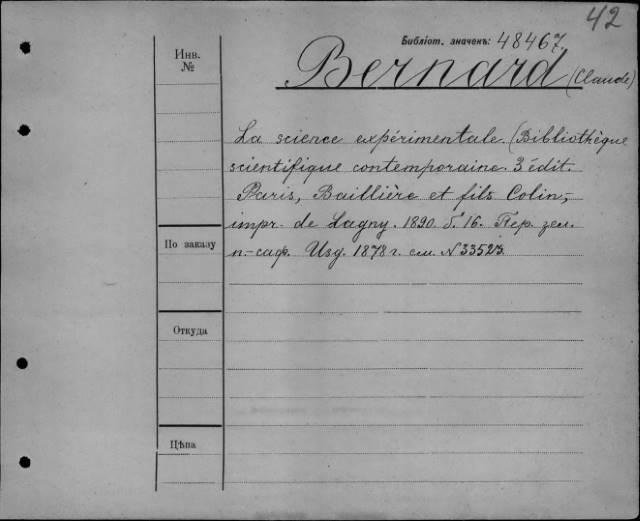 42
Библіот. значекъ: 48467.
Инв. №
Bernard (Claude)
La science expérimentale. (Bibliothèque
scientifique contemporaine. 3 édit.
Paris, Baillière et fils Colin,-
impr. de Lagny. 1890. б. 16. Пер. зел.
п.-саф. Изд. 1878 г. см. № 33523.
По заказу
Откуда
Цѣна